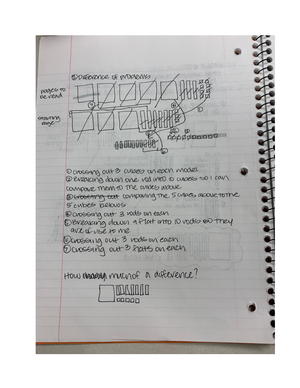 ① Difference of problems
pages to be read
starting page
① crossing out 3 cubes on each model
② Breaking down one rod into 10 cubes so I can
compare them to the cubes above
③ crossing out comparing the 5 cubes above to the
5 cubes below
④ crossing out 3 rods on each
⑤ Breaking down a flat into 10 rods so they
are of use to me
⑥ crossing out 3 rods on each
⑦ crossing out 3 flats on each
How much of a difference?